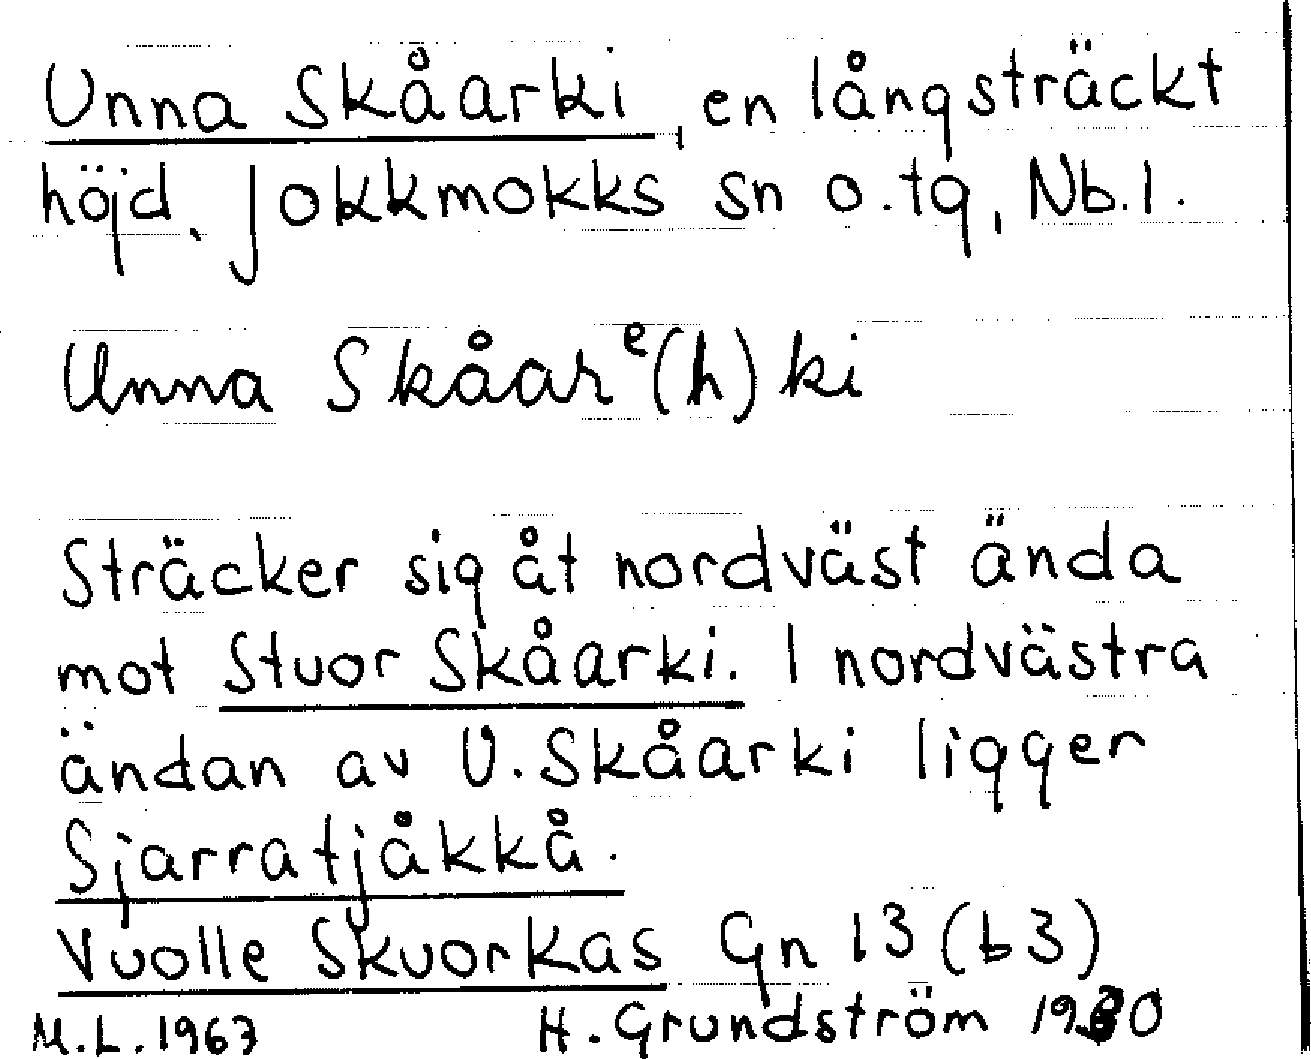 Unna Skåarki, en långsträckt
höjd, Jokkmokks sn o. tg, Nb. l.
Unna Skåarᵉ(h)ki
Sträcker sig åt nordväst ända
mot Stuor Skåarki. I nordvästra
ändan av U. Skåarki ligger
Sjarratjåkkå.
Vuolle Skuorkas Gn 13 (b3)
M.L. 1963 H. Grundström